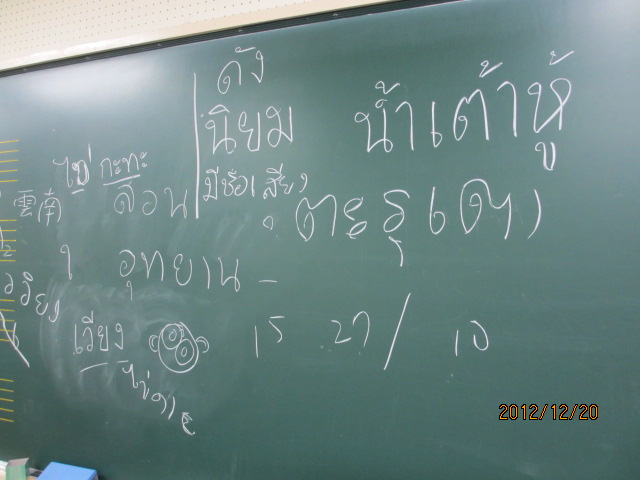 ดัง
นิยม น้ำเต้าหู้
ไข่ กะทะ
มีชื่อเสียง
雲南 สวน
อุทยาน -
เวียง
15 27 / 10
ไข่ดาว
2012/12/20